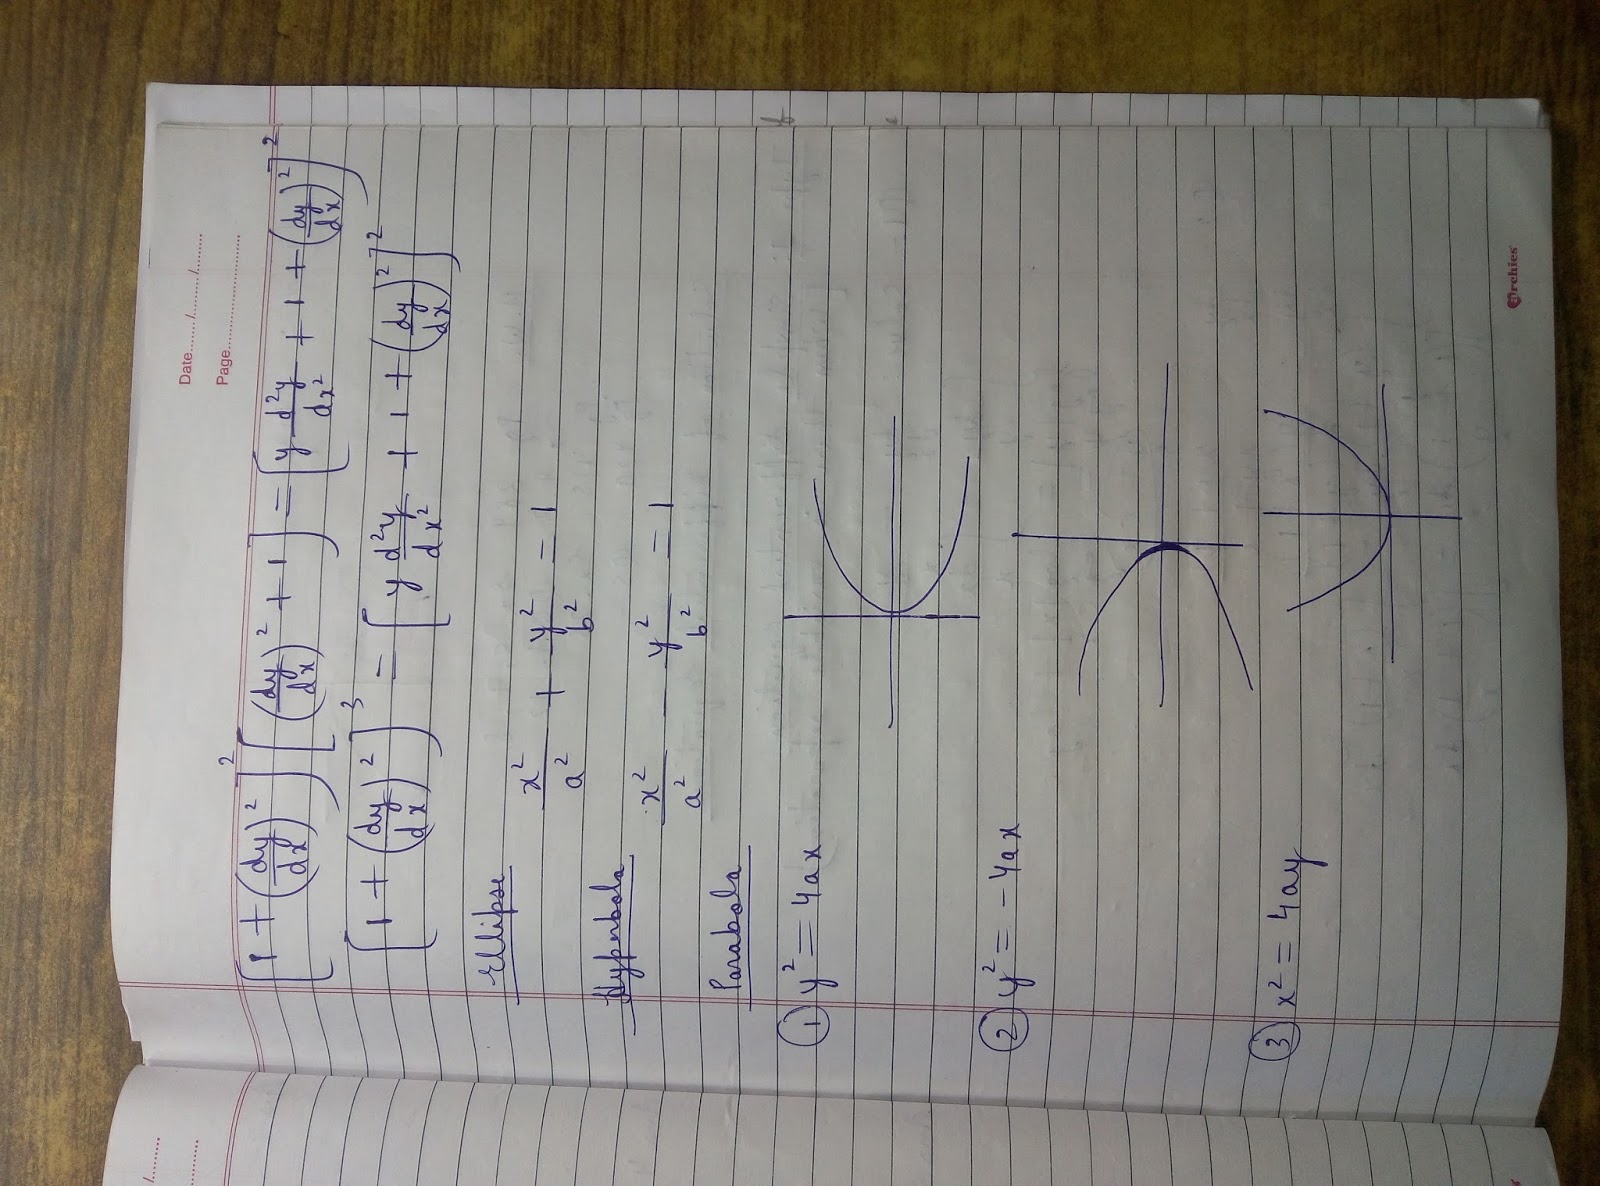 Date....../............/........
Page........................
[1 + (dy/dx)²]² [(dy/dx)² + 1] = [y d²y/dx² + 1 + (dy/dx)²]²
[1 + (dy/dx)²]³ = [y d²y/dx² + 1 + (dy/dx)²]²
Ellipse
x²/a² + y²/b² = 1
Hyperbola
x²/a² - y²/b² = 1
Parabola
① y² = 4ax
② y² = -4ax
③ x² = 4ay
Archies